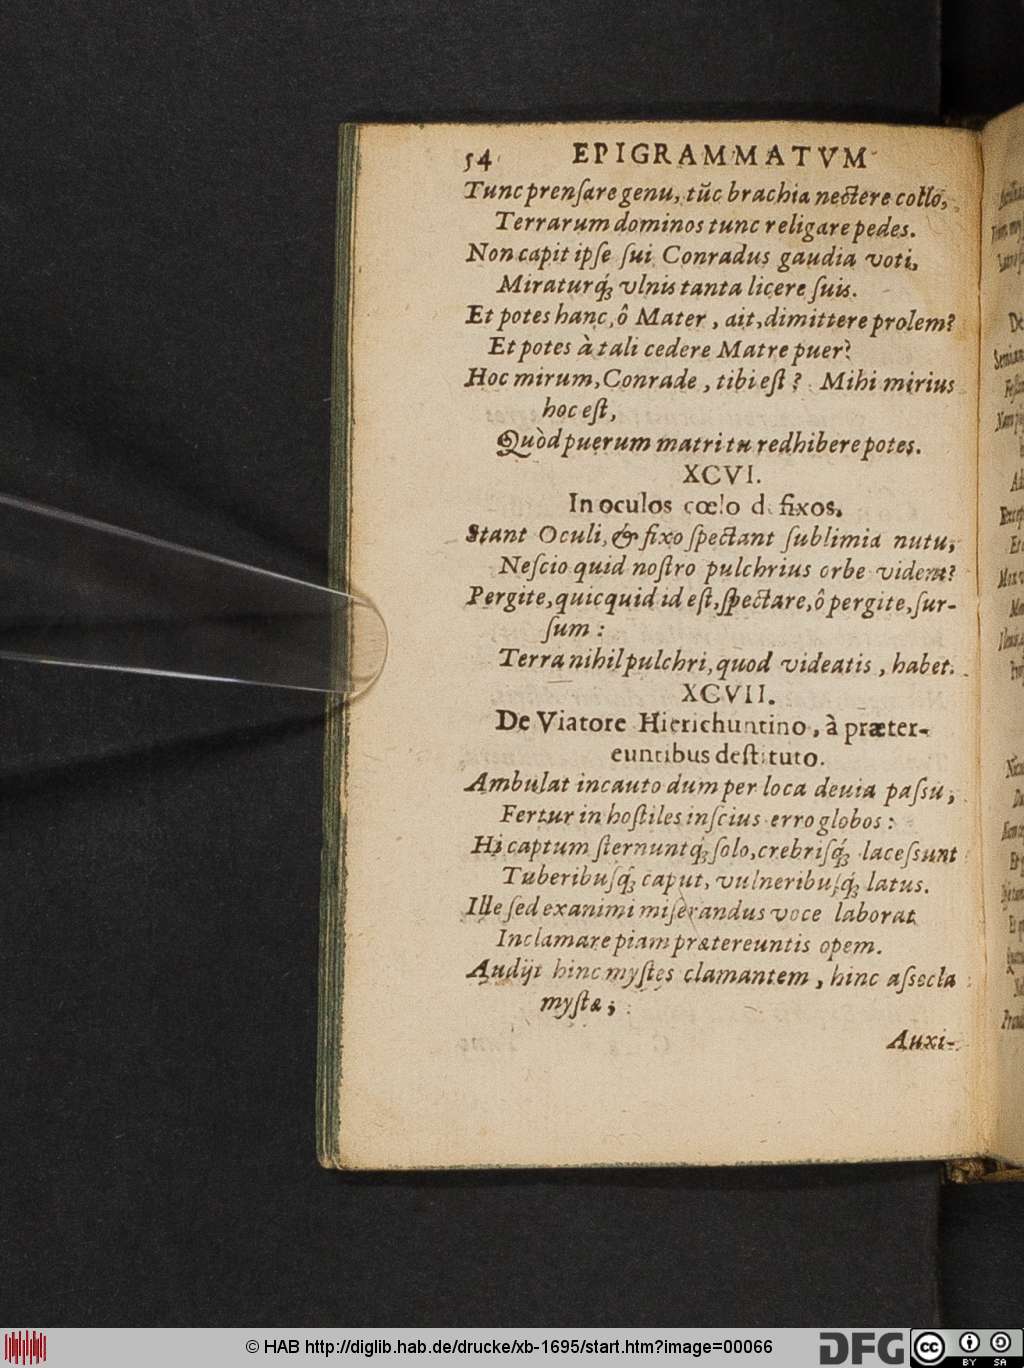 54 EPIGRAMMATVM
Tunc prenſare genu, tūc brachia nectere collo,
Terrarum dominos tunc religare pedes.
Non capit ipſe ſui Conradus gaudia voti,
Miraturq́; vlnis tanta licere ſuis.
Et potes hanc, ô Mater, ait, dimittere prolem?
Et potes à tali cedere Matre puer?
Hoc mirum, Conrade, tibi eſt? Mihi mirius
hoc eſt,
Quòd puerum matri tu redhibere potes.
XCVI.
In oculos cœlo d. fixos.
Stant Oculi, & fixo ſpectant ſublimia nutu,
Neſcio quid noſtro pulchrius orbe vident?
Pergite, quicquid id eſt, ſpectare, ô pergite, ſur-
ſum:
Terra nihil pulchri, quod videatis, habet.
XCVII.
De Viatore Hierichuntino, à præter-
euntibus deſtituto.
Ambulat incauto dum per loca deuia paſsu,
Fertur in hoſtiles inſcius erro globos:
Hi captum ſternuntq́; ſolo, crebriſq́; laceſsunt
Tuberibuſq́; caput, vulneribuſq́; latus.
Ille ſed exanimi miſerandus voce laborat
Inclamare piam prætereuntis opem.
Audijt hinc myſtes clamantem, hinc aſsecla
myſtæ;
Auxi-
© HAB http://diglib.hab.de/drucke/xb-1695/start.htm?image=00066
DFG
cc BY SA